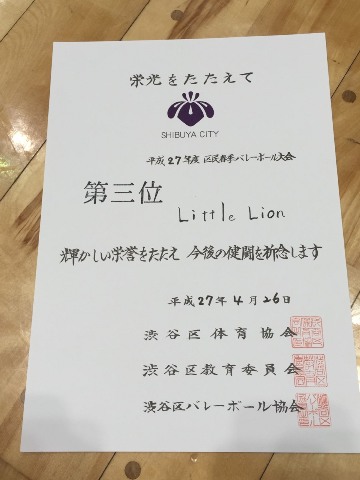 栄光をたたえて
SHIBUYA CITY
平成27年度 区民春季バレーボール大会
第三位
Little Lion
輝かしい栄誉をたたえ 今後の健闘を祈念します
平成27年4月26日
渋谷区体育協会
渋谷区教育委員会
渋谷区バレーボール協会